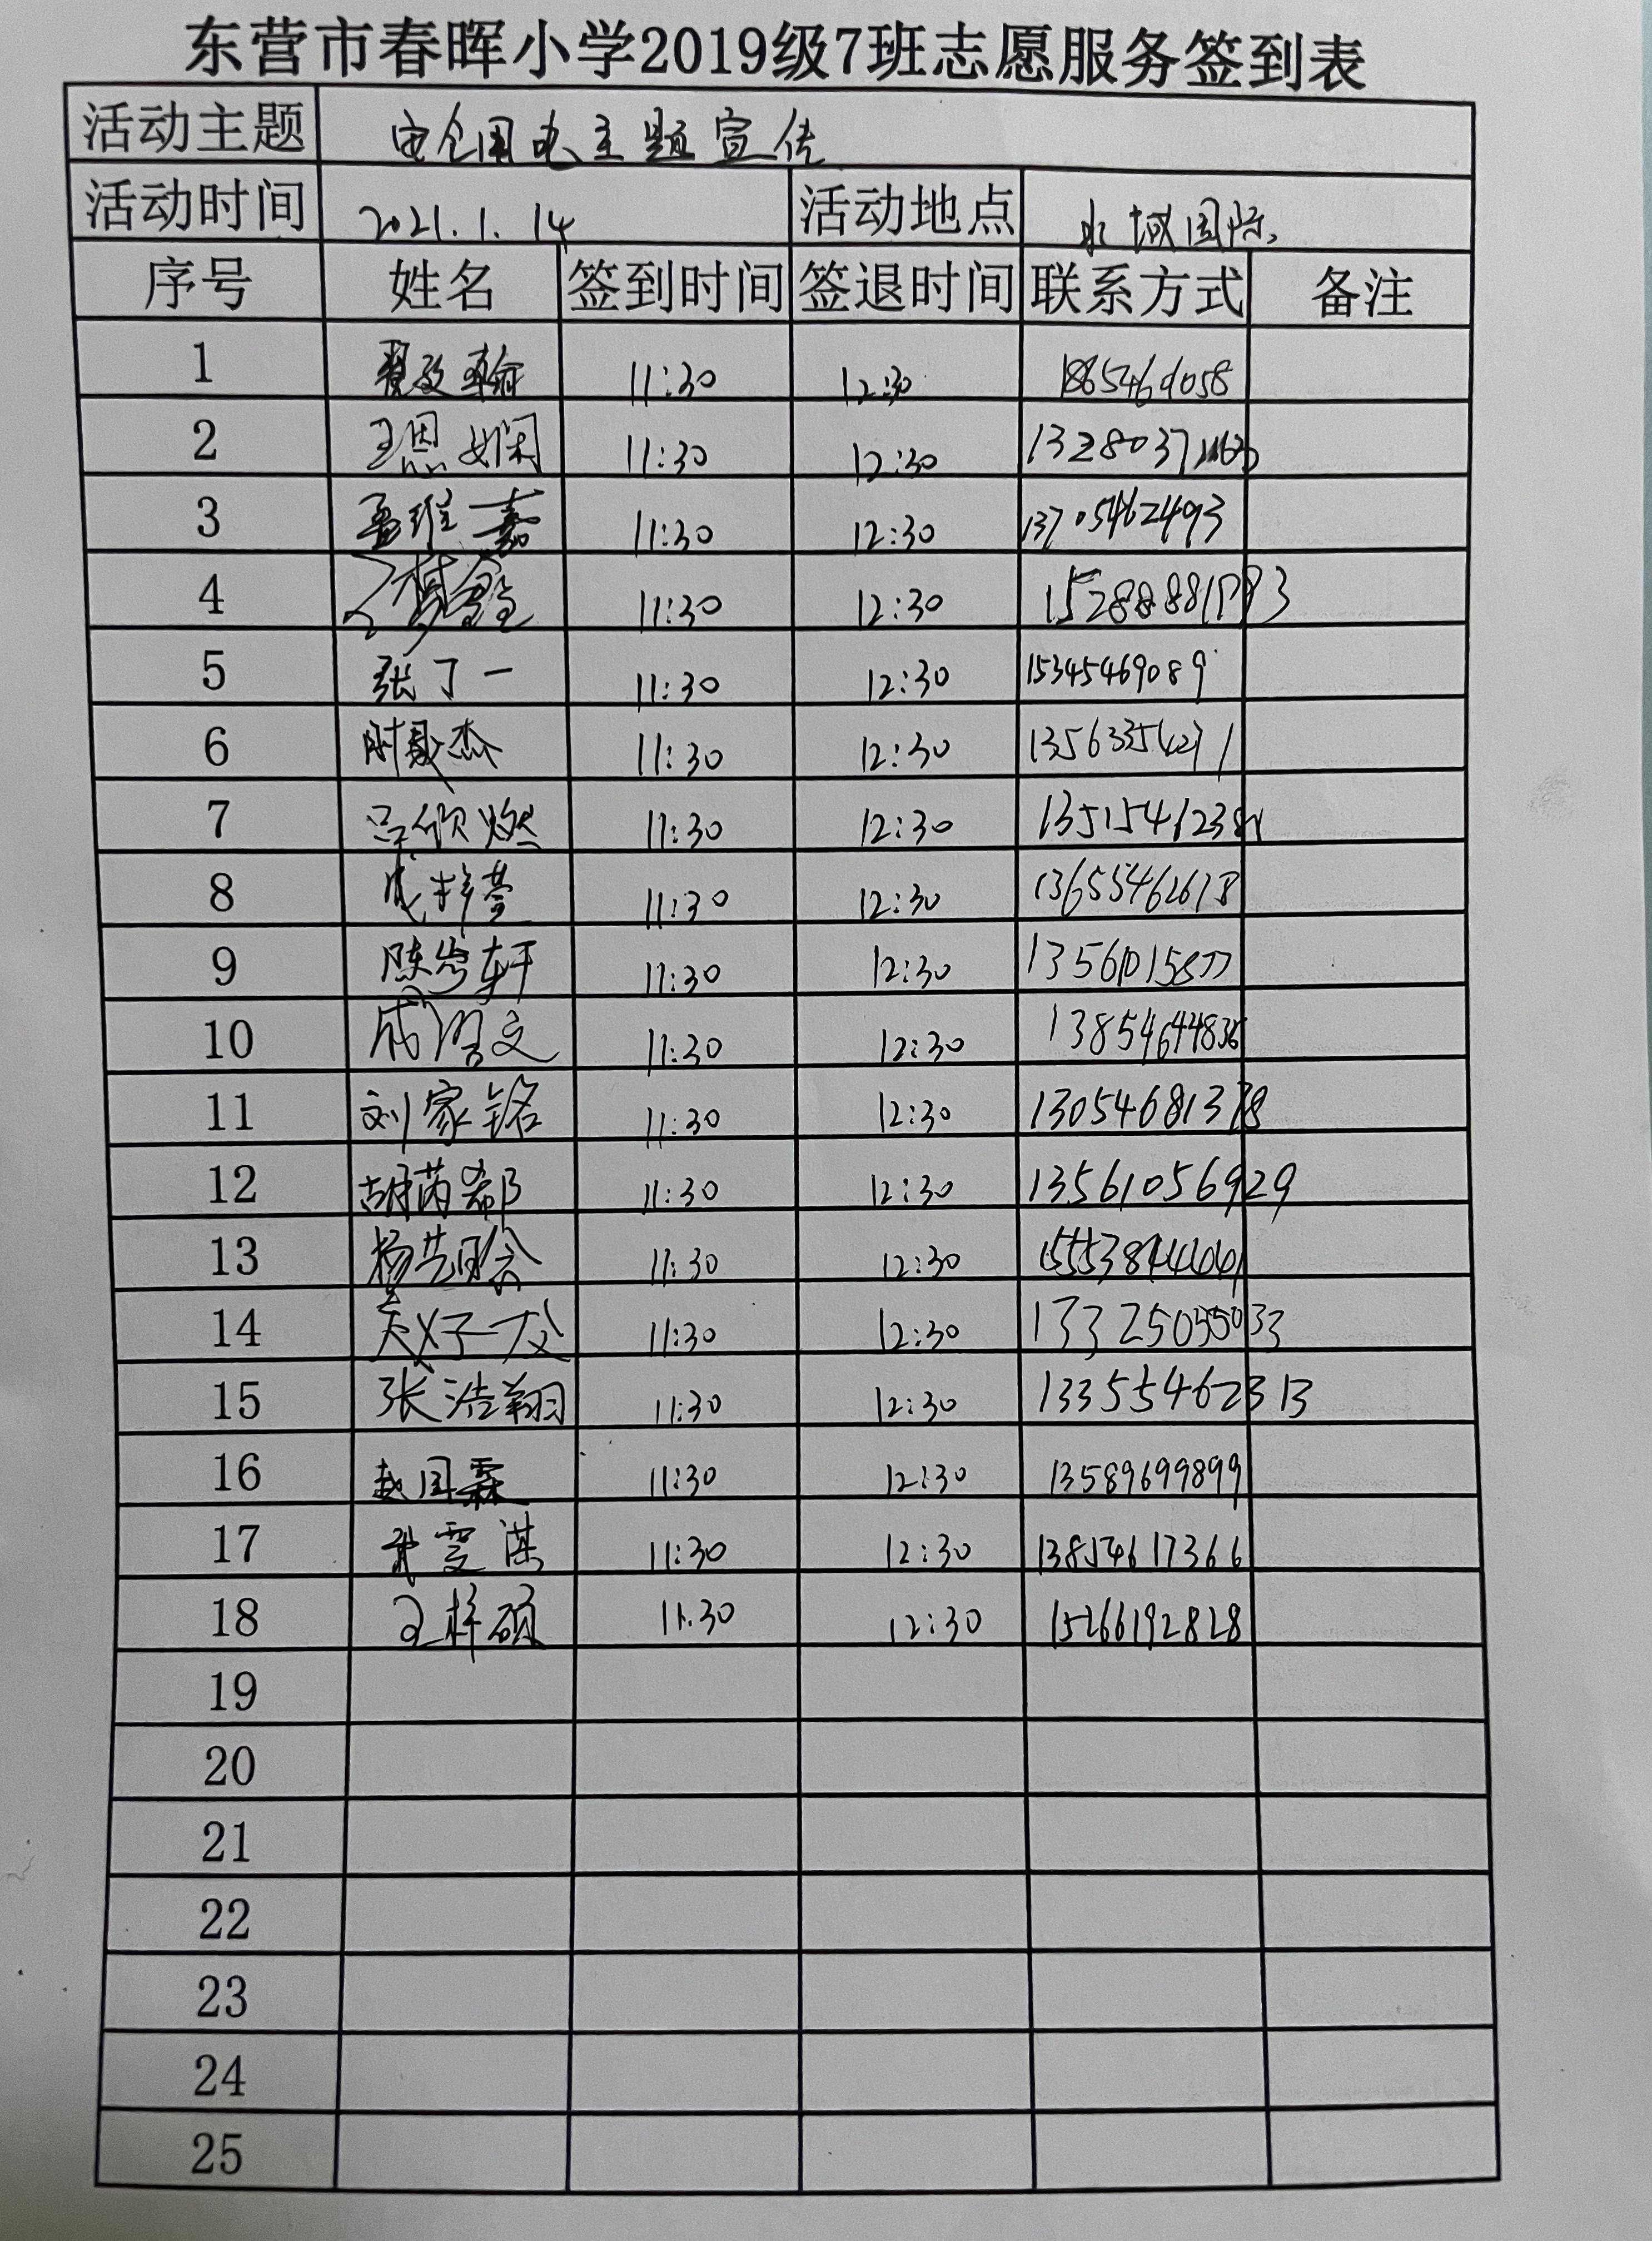 东营市春晖小学2019级7班志愿服务签到表
活动主题 安全用电主题宣传
活动时间 2021.1.14 活动地点 水城国际
序号 姓名 签到时间 签退时间 联系方式 备注
1 11:30 12:30
2 王恩娴 11:30 12:30
3 孟维嘉 11:30 12:30 13705462493
4 11:30 12:30
5 张丁一 11:30 12:30 15345469089
6 11:30 12:30
7 吕欣燃 11:30 12:30
8 11:30 12:30 13655462618
9 11:30 12:30
10 11:30 12:30 13854644836
11 刘家铭 11:30 12:30 13054681378
12 胡芮郗 11:30 12:30 13561056929
13 11:30 12:30
14 11:30 12:30
15 张浩翔 11:30 12:30 13355462313
16 赵国霖 11:30 12:30 13589699899
17 武雯淇 11:30 12:30 13854617366
18 王梓硕 11:30 12:30 15266192828
19
20
21
22
23
24
25